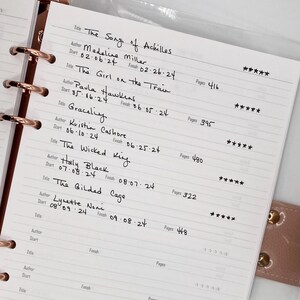 Title The Song of Achilles
Author Madeline Miller
Start 02.06.24 Finish 02.26.24 Pages 416
Title The Girl on the Train
Author Paula Hawkins
Start 03.06.24 Finish 06.05.24 Pages 395
Title Graceling
Author Kristin Cashore
Start 06.10.24 Finish 06.25.24 Pages 480
Title The Wicked King
Author Holly Black
Start 07.08.24 Finish 08.07.24 Pages 322
Title The Gilded Cage
Author Lynette Noni
Start 08.09.24 Finish 09.08.24 Pages 448
Title
Author
Start Finish Pages
Title
Author
Start Finish Pages